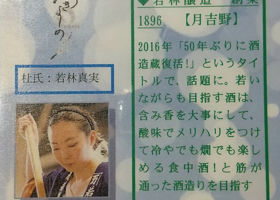 杜氏：若林真実
若林醸造
1896 【月吉野】
2016年「50年ぶりに酒
造蔵復活！」というタイ
トルで、話題に。若い
ながらも目指す酒は、
含み香を大事にして、
酸味でメリハリをつけ
て冷やでも燗でも楽し
める食中酒！と筋が
通った酒造りを目指す